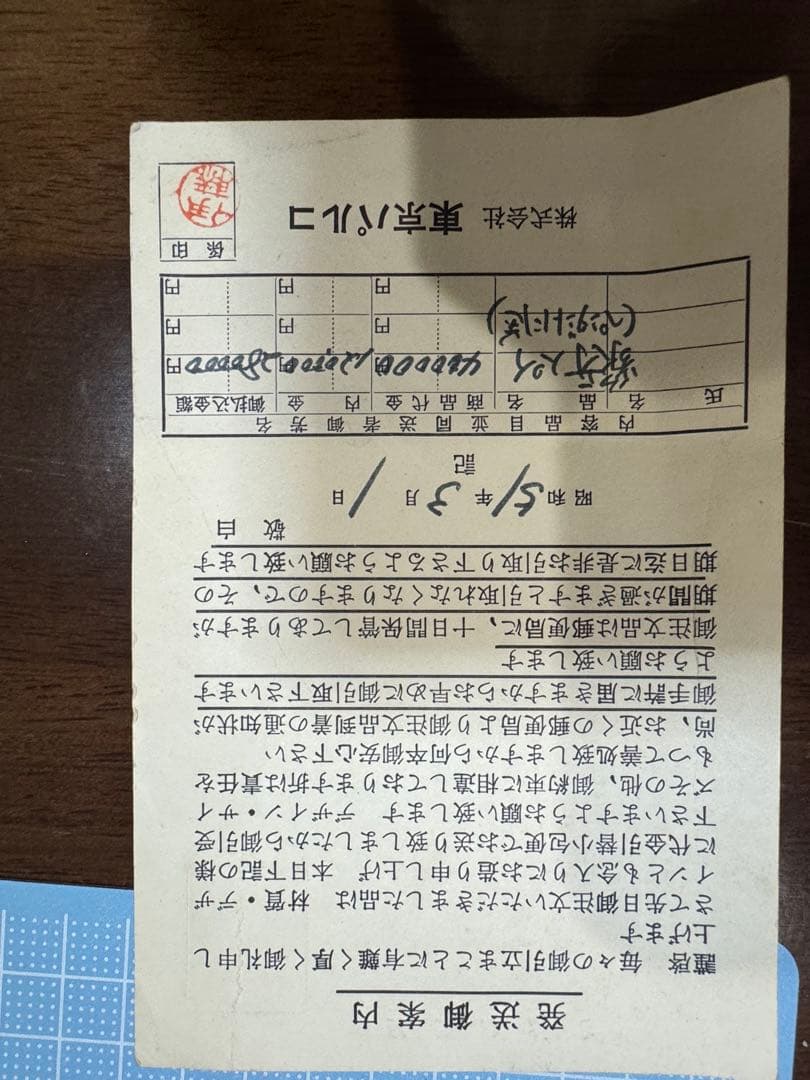 発送御案内
謹啓 毎々の御引立まことに有難く厚く御礼申し
上げます
さて先日御注文いただきました品は 材質・デザ
インとも念入りにお造り申し上げ 本日下記の様
に代金引替小包便でお送り致しましたから御引受
下さいますようお願い致します デザイン・サイ
ズその他、御約束に相違しております折は責任を
もつて善処致しますから何卒御安心下さい
尚、お近くの郵便局より御注文品到着の通知状が
御手許に届きますからお早めに御引取下さいます
ようお願い致します
御注文品は郵便局に、十日間保管してありますが
期間が過ぎますと引取れなくなりますので、その
期日迄に是非お引取り下さるようお願い致します
敬白
昭和51年3月1日
記
内容品目並同送者御芳名
氏名 品名 商品代金 内金 御払込金額
40000円 12,000円 28000円
円 円 円
円 円 円
株式会社 東京パルコ
係印
伊藤